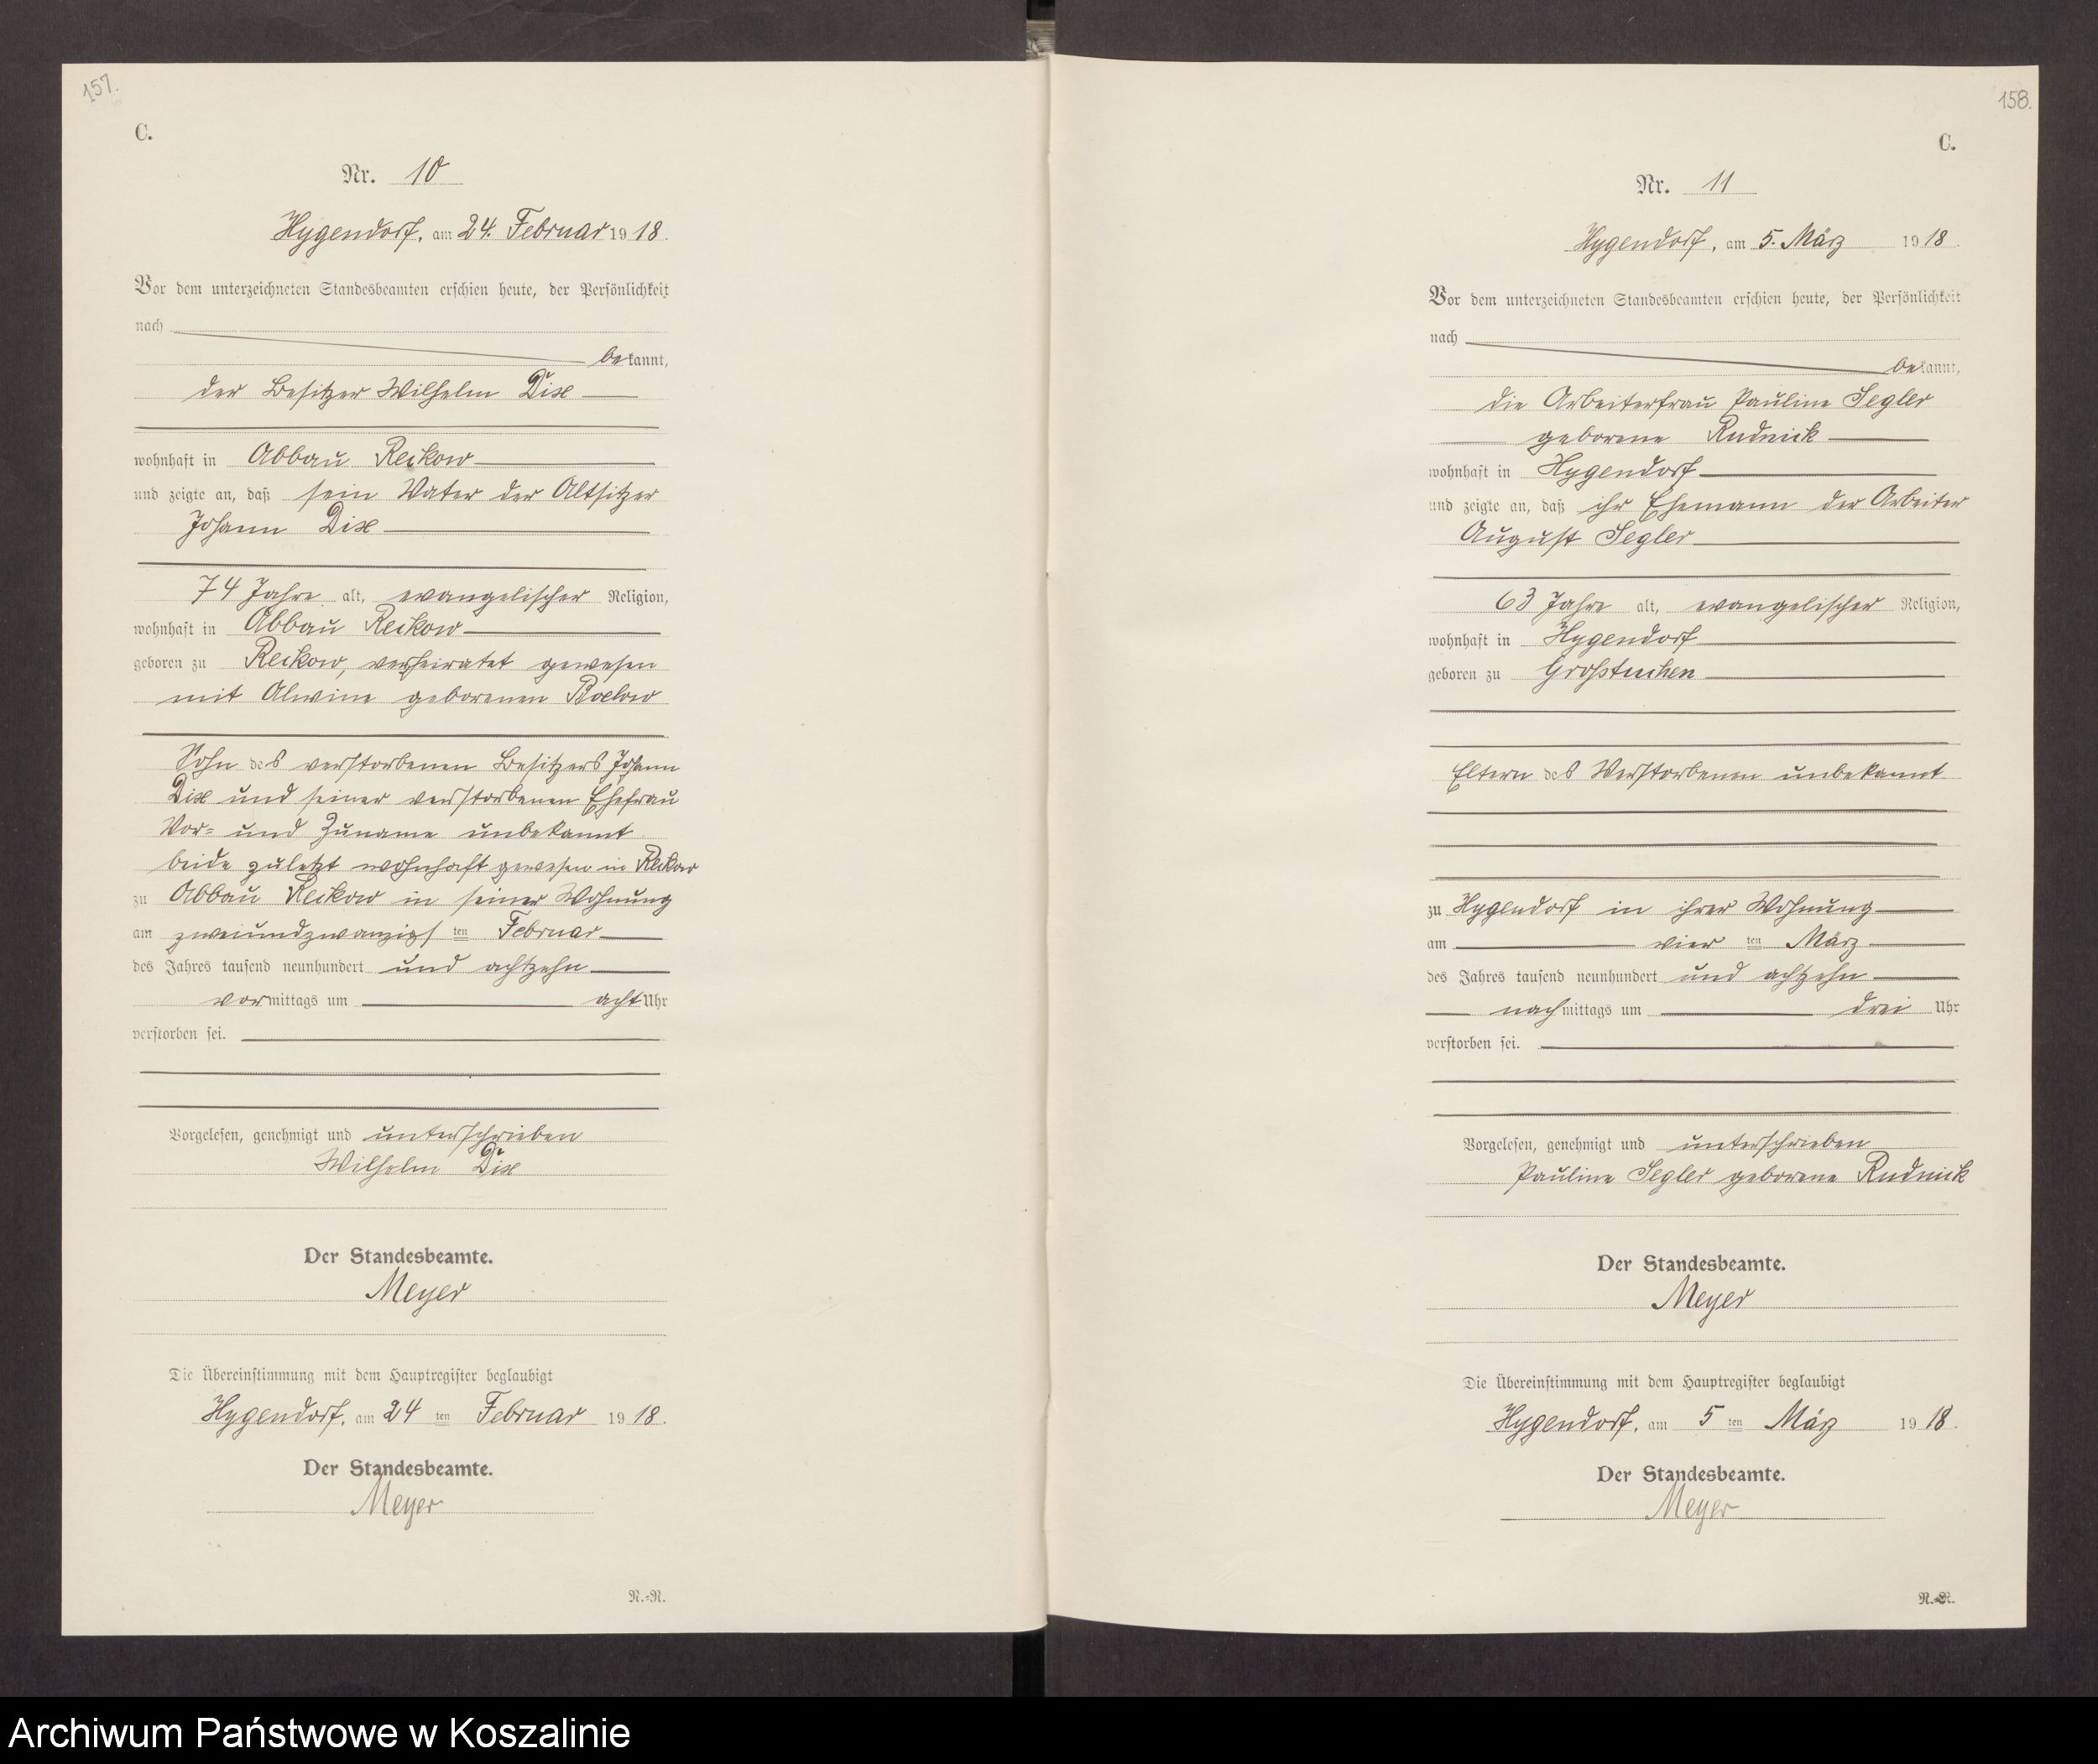 157.
C.
Nr. 10
Hygendorf, am 24. Februar 1918.
Vor dem unterzeichneten Standesbeamten erschien heute, der Persönlichkeit
nach
bekannt,
der Besitzer Wilhelm Dix
wohnhaft in Abbau Reckow
und zeigte an, daß sein Vater der Altsitzer
Johann Dix
74 Jahre alt, evangelischer Religion,
wohnhaft in Abbau Reckow
geboren zu Reckow, verheiratet gewesen
mit Alwine geborenen
Sohn des verstorbenen Besitzers Johann
Dix und seiner verstorbenen Ehefrau
Vor- und Zuname unbekannt
beide zuletzt wohnhaft gewesen in Reckow
zu Abbau Reckow in seiner Wohnung
am zweiundzwanzigsten Februar
des Jahres tausend neunhundert und achtzehn
vormittags um acht Uhr
verstorben sei.
Vorgelesen, genehmigt und unterschrieben
Wilhelm Dix
Der Standesbeamte.
Meyer
Die Übereinstimmung mit dem Hauptregister beglaubigt
Hygendorf, am 24 ten Februar 1918.
Der Standesbeamte.
Meyer
N.-R.
158.
C.
Nr. 11
Hygendorf, am 5. März 1918.
Vor dem unterzeichneten Standesbeamten erschien heute, der Persönlichkeit
nach
bekannt,
die Arbeiterfrau Pauline Segler
geborene Rudnick
wohnhaft in Hygendorf
und zeigte an, daß ihr Ehemann der Arbeiter
August Segler
63 Jahre alt, evangelischer Religion,
wohnhaft in Hygendorf
geboren zu Großtuchen
Eltern des Verstorbenen unbekannt
zu Hygendorf in ihrer Wohnung
am vier ten März
des Jahres tausend neunhundert und achtzehn
nachmittags um drei Uhr
verstorben sei.
Vorgelesen, genehmigt und unterschrieben
Pauline Segler geborene Rudnick
Der Standesbeamte.
Meyer
Die Übereinstimmung mit dem Hauptregister beglaubigt
Hygendorf, am 5 ten März 1918.
Der Standesbeamte.
Meyer
N.-R.
Archiwum Państwowe w Koszalinie